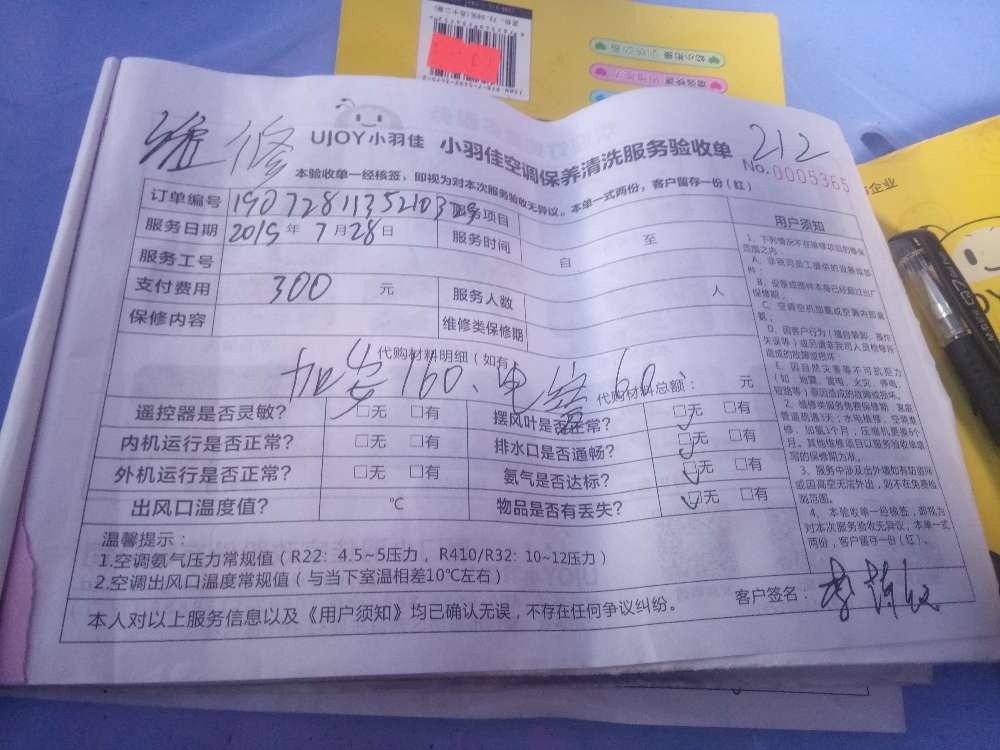 维修
212
UJOY小羽佳 小羽佳空调保养清洗服务验收单
No.0005365
本验收单一经核签，即视为对本次服务验收无异议。本单一式两份，客户留存一份（红）
订单编号 服务项目
服务日期 2019年7月28日 服务时间 自 至
服务工号
支付费用 300 元 服务人数 人
保修内容 维修类保修期
代购材料明细（如有）
160、 60、
代购材料总额： 元
遥控器是否灵敏？ □无 □有 摆风叶是否正常？ □无 □有
内机运行是否正常？ □无 □有 排水口是否通畅？ □无 □有
外机运行是否正常？ □无 □有 氨气是否达标？ □无 □有
出风口温度值？ ℃ 物品是否有丢失？ □无 □有
温馨提示：
1.空调氨气压力常规值（R22：4.5~5压力，R410/R32：10~12压力）
2.空调出风口温度常规值（与当下室温相差10℃左右）
本人对以上服务信息以及《用户须知》均已确认无误，不存在任何争议纠纷。
客户签名：
用户须知
1、下列情况不在维修项目的售保
范围之内：
A、非我司员工提供的设备或部
件；
B、设备或部件本身已经超过出厂
保修期；
D、因客户行为（擅自装卸、操作
失误等）或另请非我司人员检修所
造成的故障或损坏；
E、因自然灾害等不可抗拒力
（如：地震、雷电、火灾、停电、
短路等）原因造成的故障或损坏。
2、维修类服务免费保修期，家庭
管道疏通3天；水电维修、空调维
修、加氟1个月；压缩机更换6个
月。其他维修项目以服务验收单填
写的保修期为准。
3、服务中涉及出外墙如有防盗网
或因高空无法外出，则不在免费检
测范围。
4、本验收单一经核签，即视为
对本次服务验收无异议，本单一式
两份，客户留存一份（红）。
企业